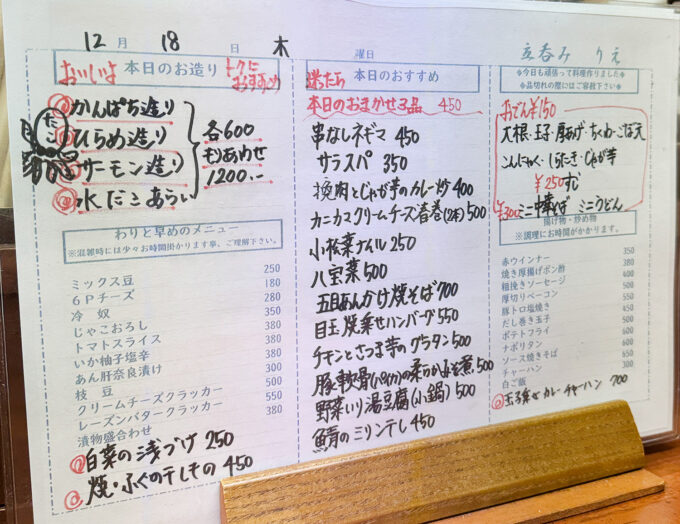 12月 18日 木曜日
立呑み りえ
おいしいよ 本日のお造り とくにおすすめ
かんぱち造り
ひらめ造り
サーモン造り
水だこあらい
各600
もりあわせ
1200.-
わりと早めのメニュー
※混雑時には少々お時間掛かります事、ご理解下さい。
ミックス豆 250
6Pチーズ 180
冷奴 280
じゃこおろし 350
トマトスライス 380
いか柚子塩辛 380
あん肝奈良漬け 380
枝豆 300
クリームチーズクラッカー 550
レーズンバタークラッカー 380
漬物盛合わせ
白菜の浅づけ 250
焼・ふぐの干しもの 450
迷たら 本日のおすすめ
本日のおまかせ3品 450
串なしネギマ 450
サラスパ 350
挽肉とじゃが芋のカレー炒 400
カニカマクリームチーズ春巻(2本) 500
小松菜ナムル 250
八宝菜 500
五目あんかけ焼そば 700
目玉焼乗せハンバーグ 550
チキンとさつま芋のグラタン 500
豚軟骨(パイカ)の柔らか煮 500
野菜いり湯豆腐(小鍋) 500
鯖のミリン干し 450
◆今日も頑張って料理作りました◆
◆品切れの際にはご容赦下さい◆
おでん¥150
大根・玉子・厚あげ・ちくわ・ごぼ天
こんにゃく・しらたき・じゃが芋
¥250すじ
¥300ミニ中華そば ミニうどん
揚げ物・炒め物
※調理にお時間がかかります。
赤ウインナー 350
焼き厚揚げポン酢 380
粗挽きソーセージ 500
厚切りベーコン 550
豚トロ塩焼き 450
だし巻き玉子 500
ポテトフライ 400
ナポリタン 600
ソース焼きそば 650
チャーハン 300
白ご飯
玉子乗せカレーチャーハン 700